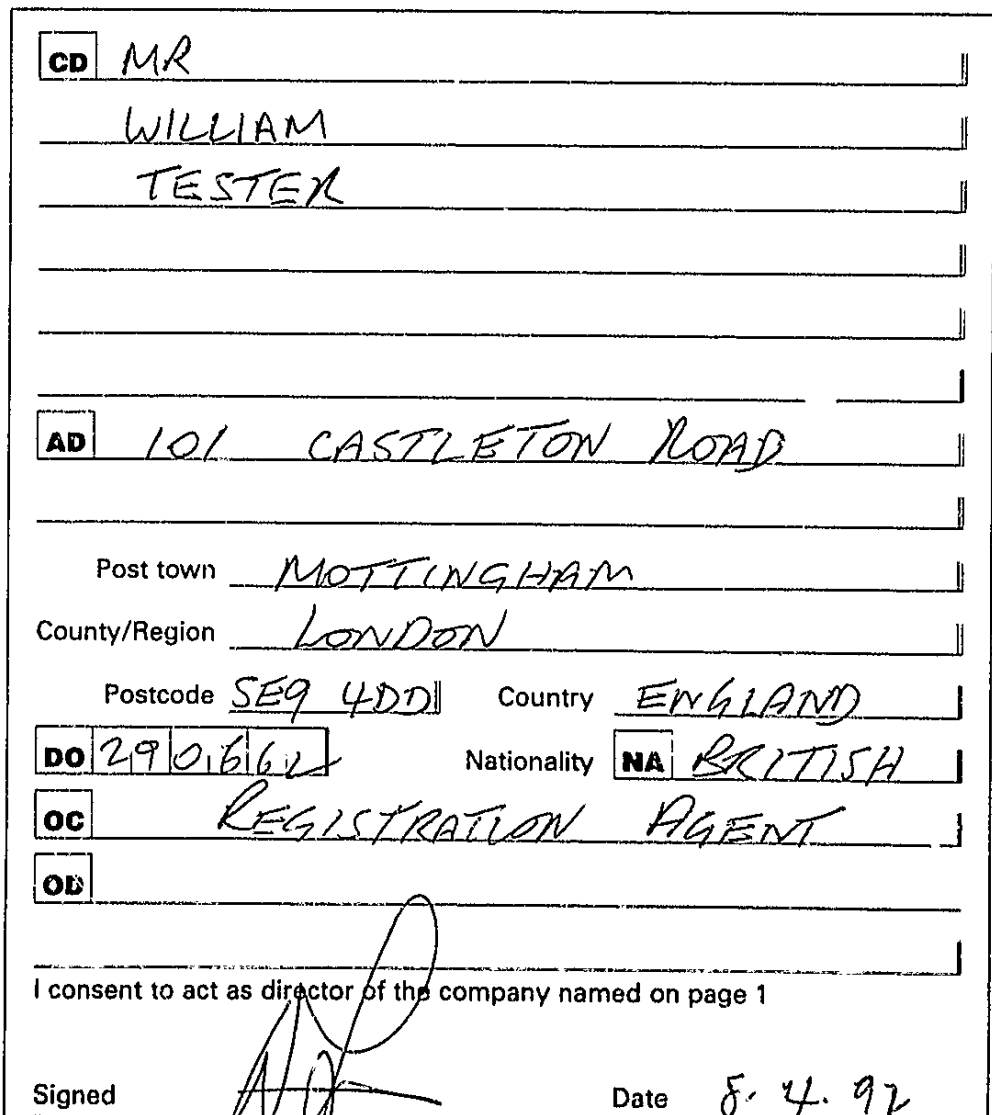 CD MR
WILLIAM
TESTER
AD 101 CASTLETON ROAD
Post town MOTTINGHAM
County/Region LONDON
Postcode SE9 4DD Country ENGLAND
DO 290662 Nationality NA BRITISH
OC REGISTRATION AGENT
OD
I consent to act as director of the company named on page 1
Signed Date 8. 4. 92